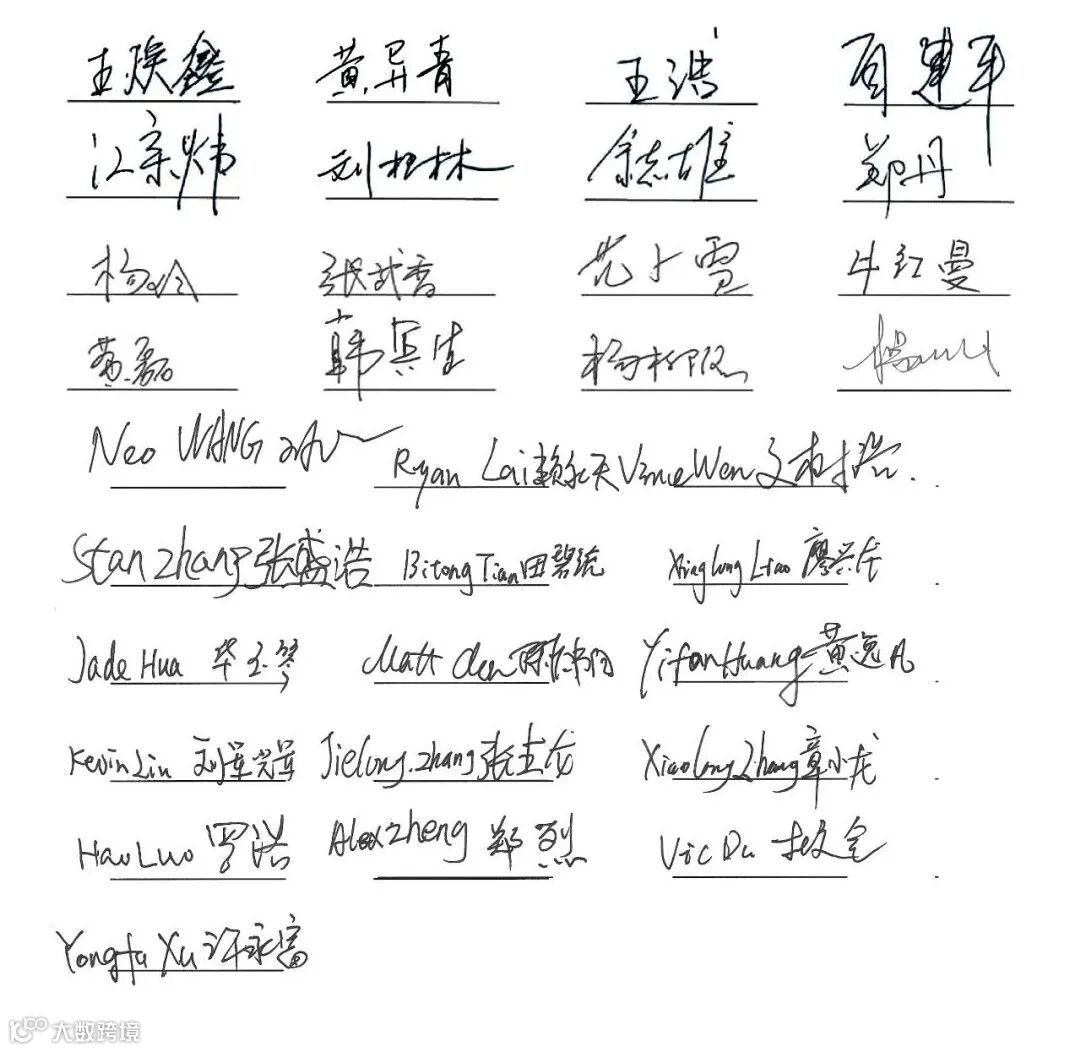 王焕鑫 黄昇青 王浩 建平
江宗炜 刘桂林 余志雄 郑丹
杨 张武香 雪 牛红曼
黄磊 韩宾生 杨柳
Neo WANG Ryan Lai 赖 天 Vince Wen 文
Stan Zhang 张盛浩 Bitong Tian 田碧统 Xinglong Liao 廖兴龙
Jade Hua 华玉琴 Matt Chen 陈 Yifan Huang 黄逸凡
Kevin Liu 刘军 Jielong Zhang 张杰龙 Xiaolong Zhang 章小龙
Hao Luo 罗浩 Alex Zheng 郑烈 Vic Du
Yongfu Xu 许永富
大数跨境